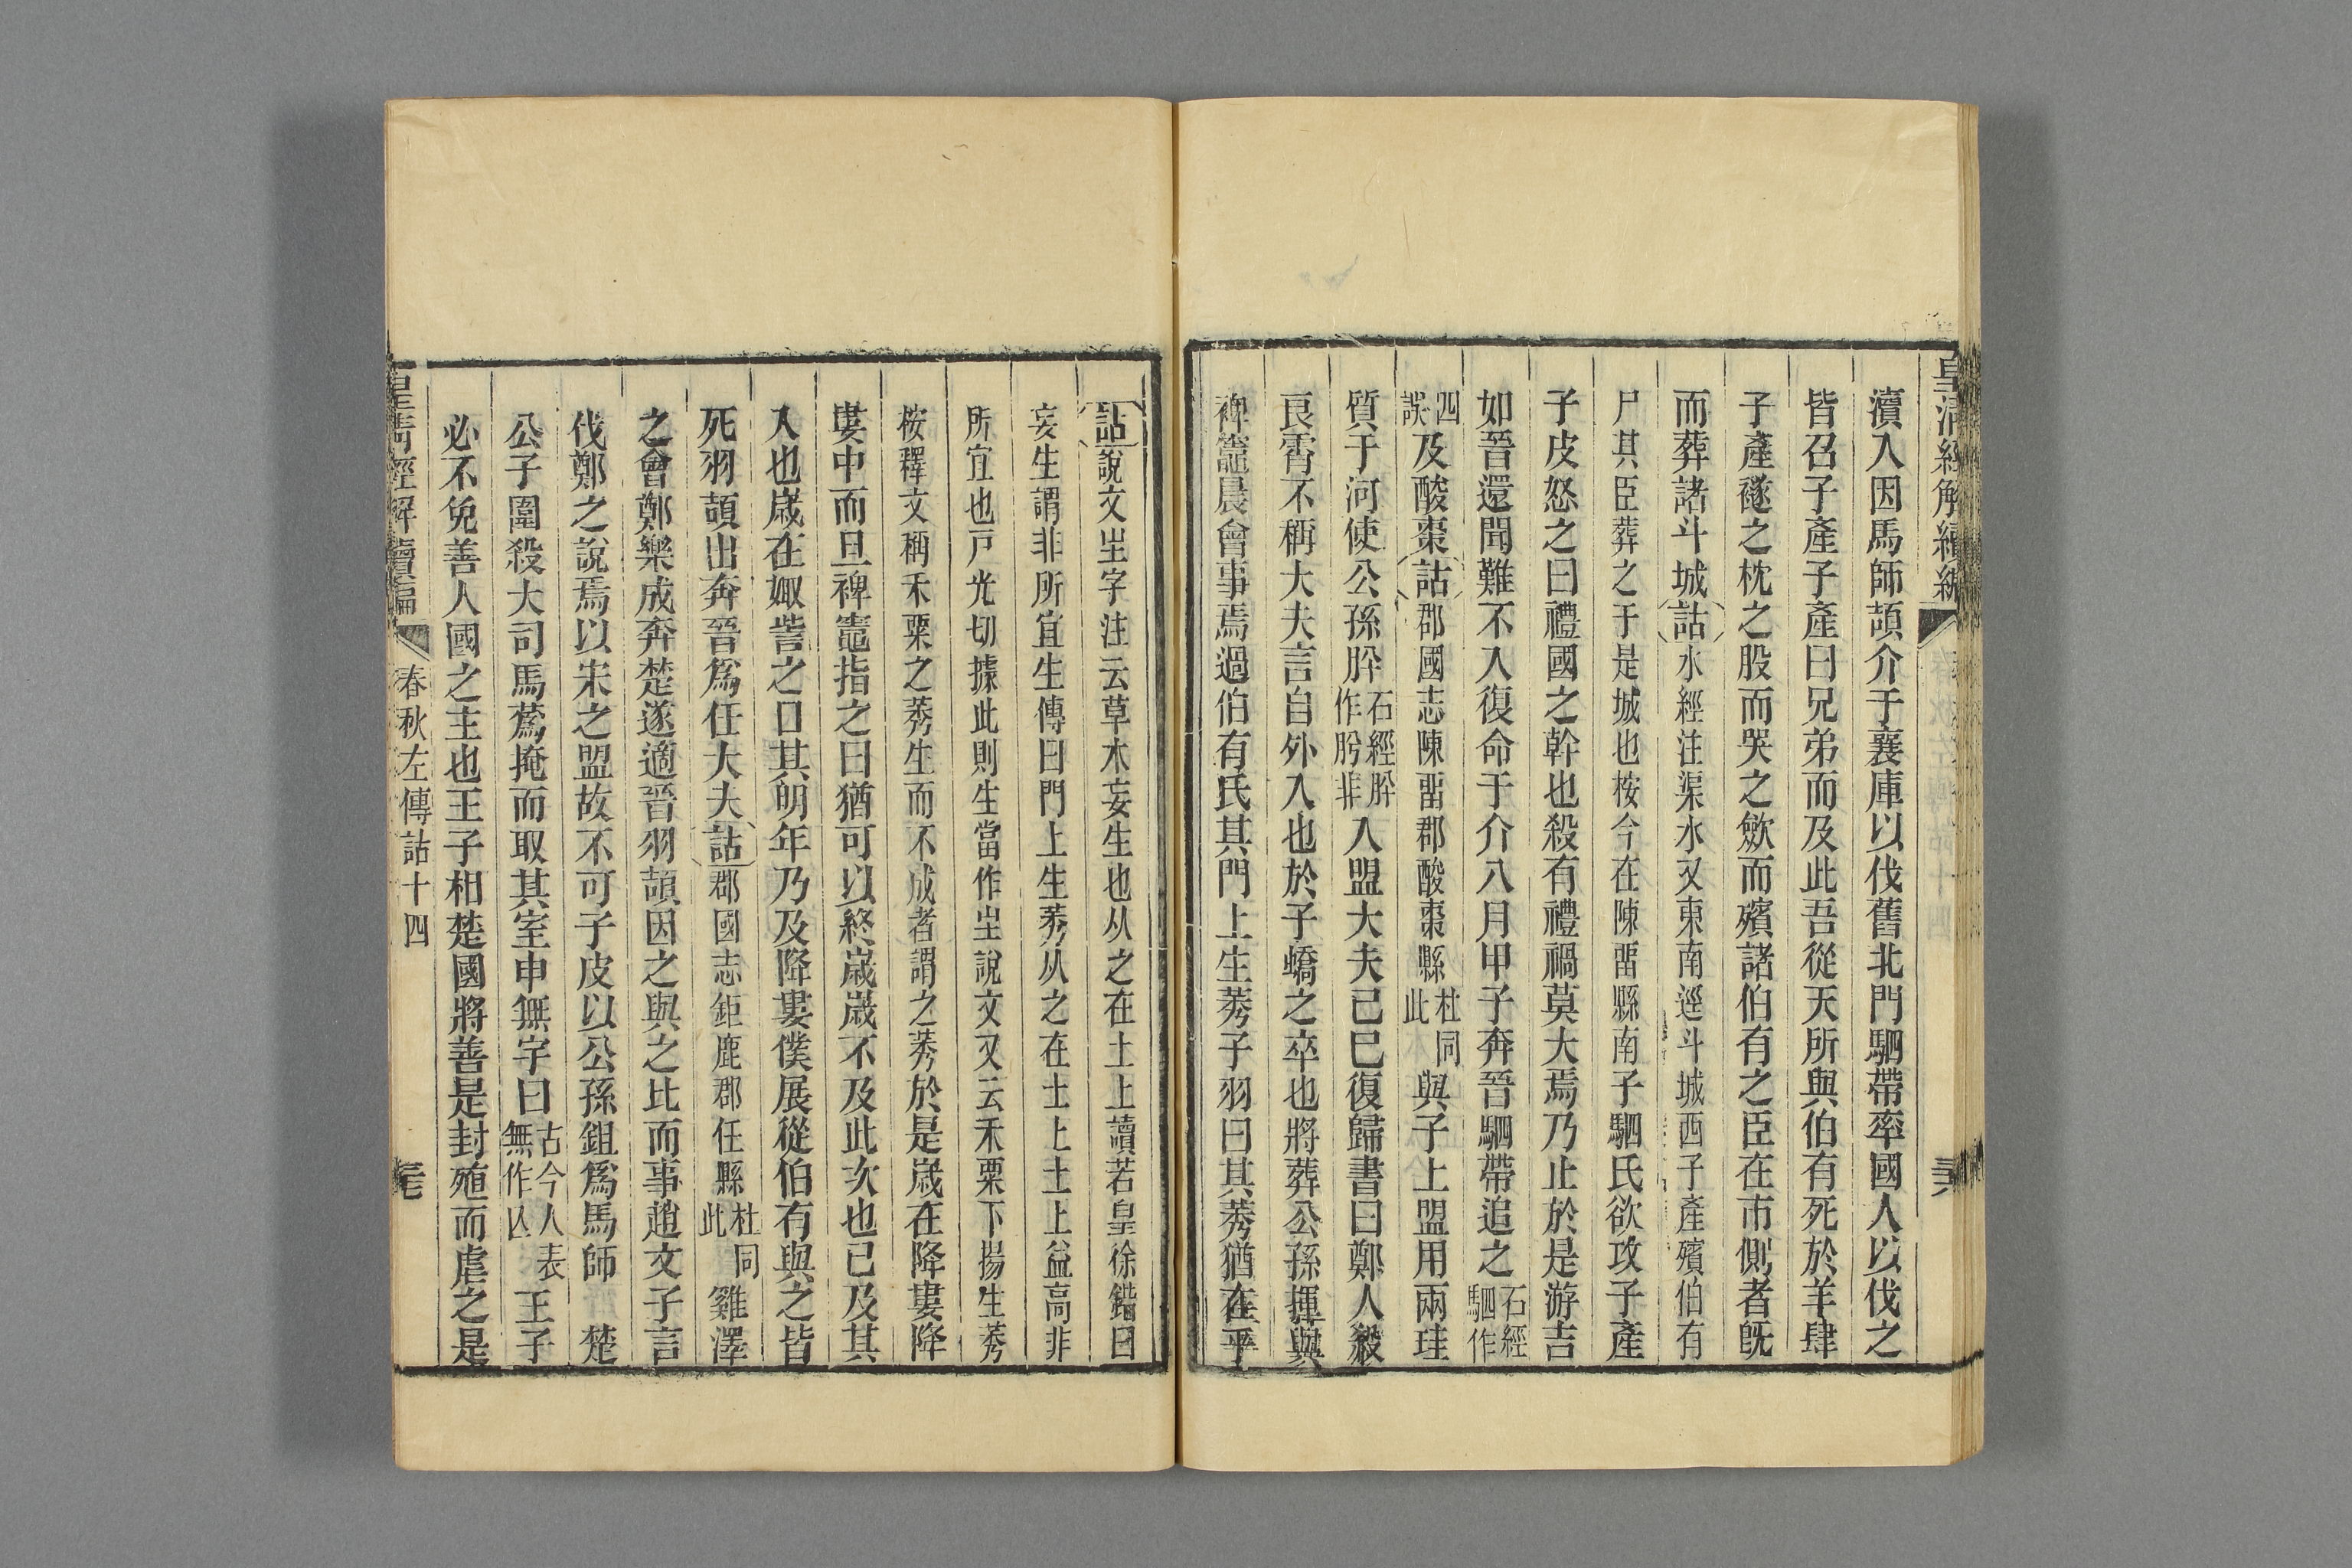 皇清經解續編
瀆入因馬師頡介于襄庫以伐舊北門駟帶率國人以伐之
皆召子產子產曰兄弟而及此吾從天所與伯有死於羊肆
子產襚之枕之股而哭之斂而殯諸伯有之臣在市側者旣
而葬諸斗城詁水經注渠水又東南逕斗城西子產殯伯有
尸其臣葬之于是城也桉今在陳畱縣南子駟氏欲攻子產
子皮怒之曰禮國之幹也殺有禮禍莫大焉乃止於是游吉
如晉還聞難不入復命于介八月甲子奔晉駟帶追之石經駟作
四誤及酸棗詁郡國志陳畱郡酸棗縣杜同此與子上盟用兩珪
質于河使公孫肸石經肸作肹非入盟大夫己巳復歸書曰鄭人殺
良霄不稱大夫言自外入也於子蟜之卒也將葬公孫揮與
裨竈晨會事焉過伯有氏其門上生莠子羽曰其莠猶在乎
詁說文㞷字注云草木妄生也从之在土上讀若皇徐鍇曰
妄生謂非所宜生傳曰門上生莠从之在土上土上益高非
所宜也戸光切據此則生當作㞷說文又云禾粟下揚生莠
桉釋文稱禾粟之莠生而不成者謂之莠於是歲在降婁降
婁中而旦裨竈指之曰猶可以終歲歲不及此次也已及其
入也歲在娵訾之口其明年乃及降婁僕展從伯有與之皆
死羽頡出奔晉爲任大夫詁郡國志鉅鹿郡任縣杜同此雞澤
之會鄭樂成奔楚遂適晉羽頡因之與之比而事趙文子言
伐鄭之說焉以宋之盟故不可子皮以公孫鉏爲馬師 楚
公子圍殺大司馬蔿掩而取其室申無宇曰古今人表無作亾王子
必不免善人國之主也王子相楚國將善是封殖而虐之是
皇清經解續編 春秋左傳詁十四